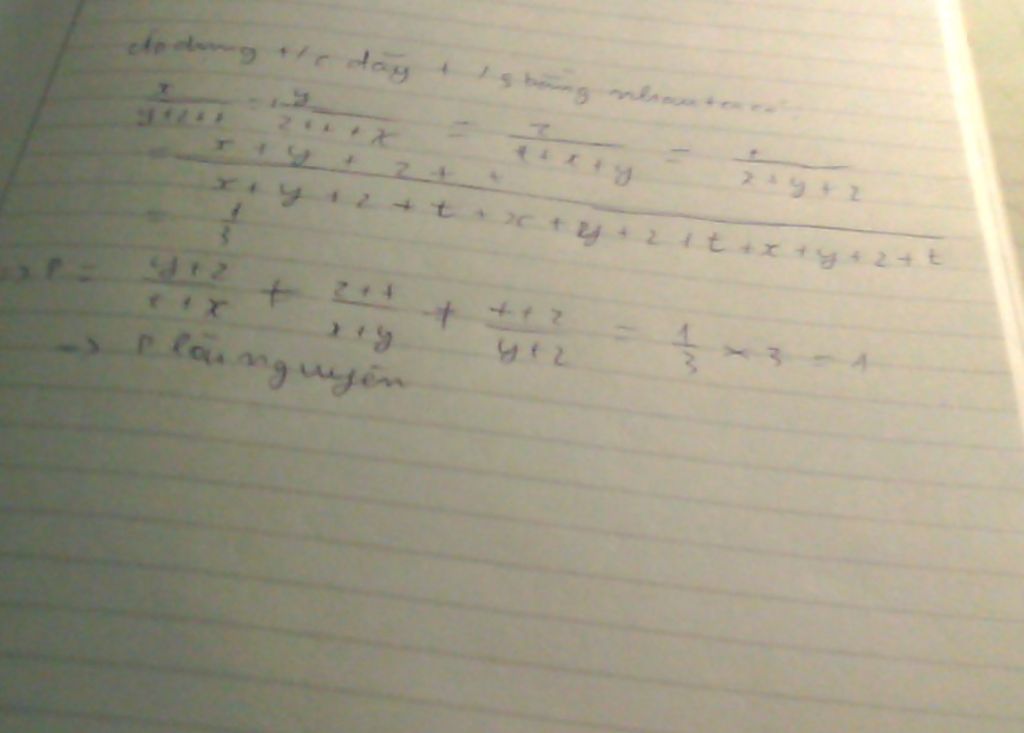 áp dụng t/c dãy t/s bằng nhau ta có:
x/y+z+t = y/z+t+x = z/t+x+y = t/x+y+z
= x+y+z+t/x+y+z+t+x+y+z+t+x+y+z+t
= 1/3
=> P = y+z/t+x + z+t/x+y + t+z/y+z = 1/3 × 3 = 1
-> P là nguyên